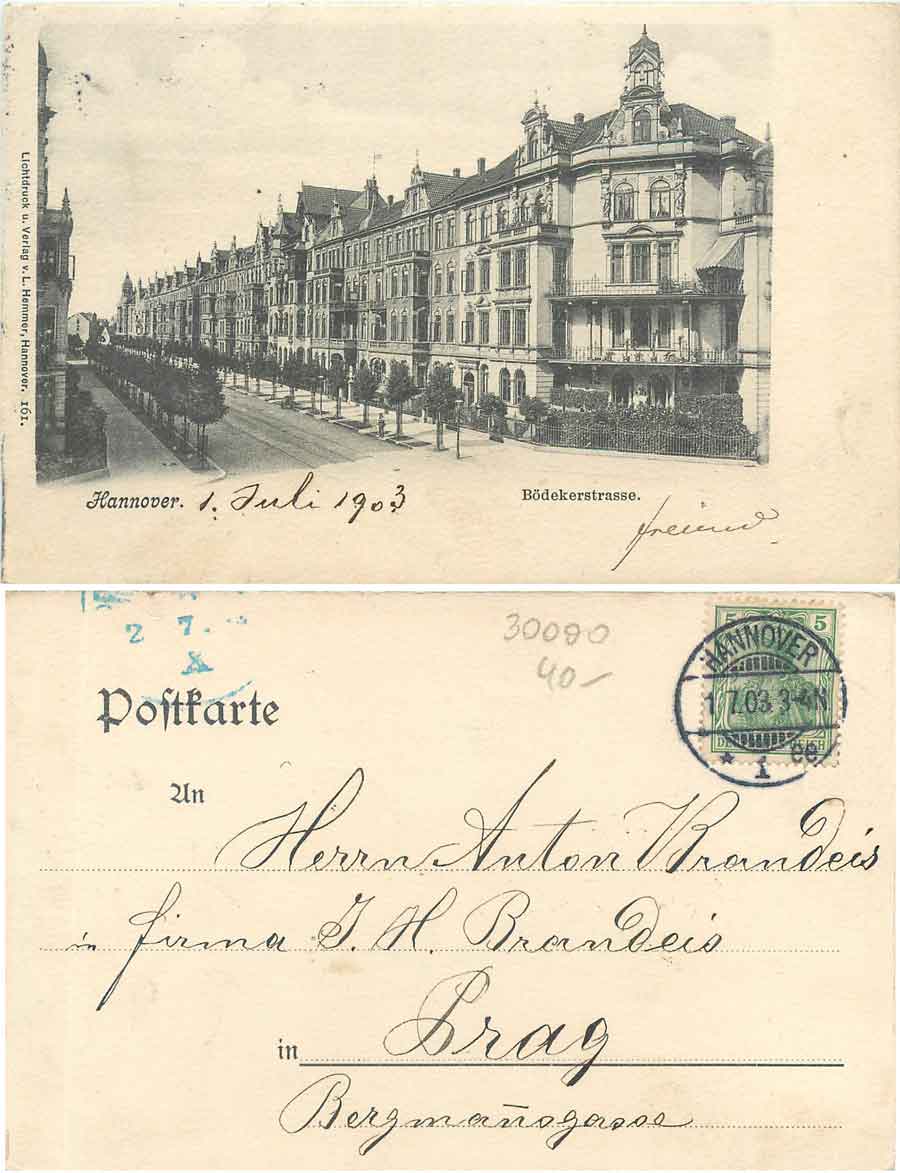 Lichtdruck u. Verlag v. L. Hemmer, Hannover. 161.
Hannover. 1. Juli 1903
Bödekerstrasse.
freund
2 7.
X
30090
40-
5 5
HANNOVER
1.7.03. 3-4N
REICH
* 1 ee
Postkarte
An
Herrn Anton Brandeis
in firma J. H. Brandeis
in Prag
Bergman̄sgasse